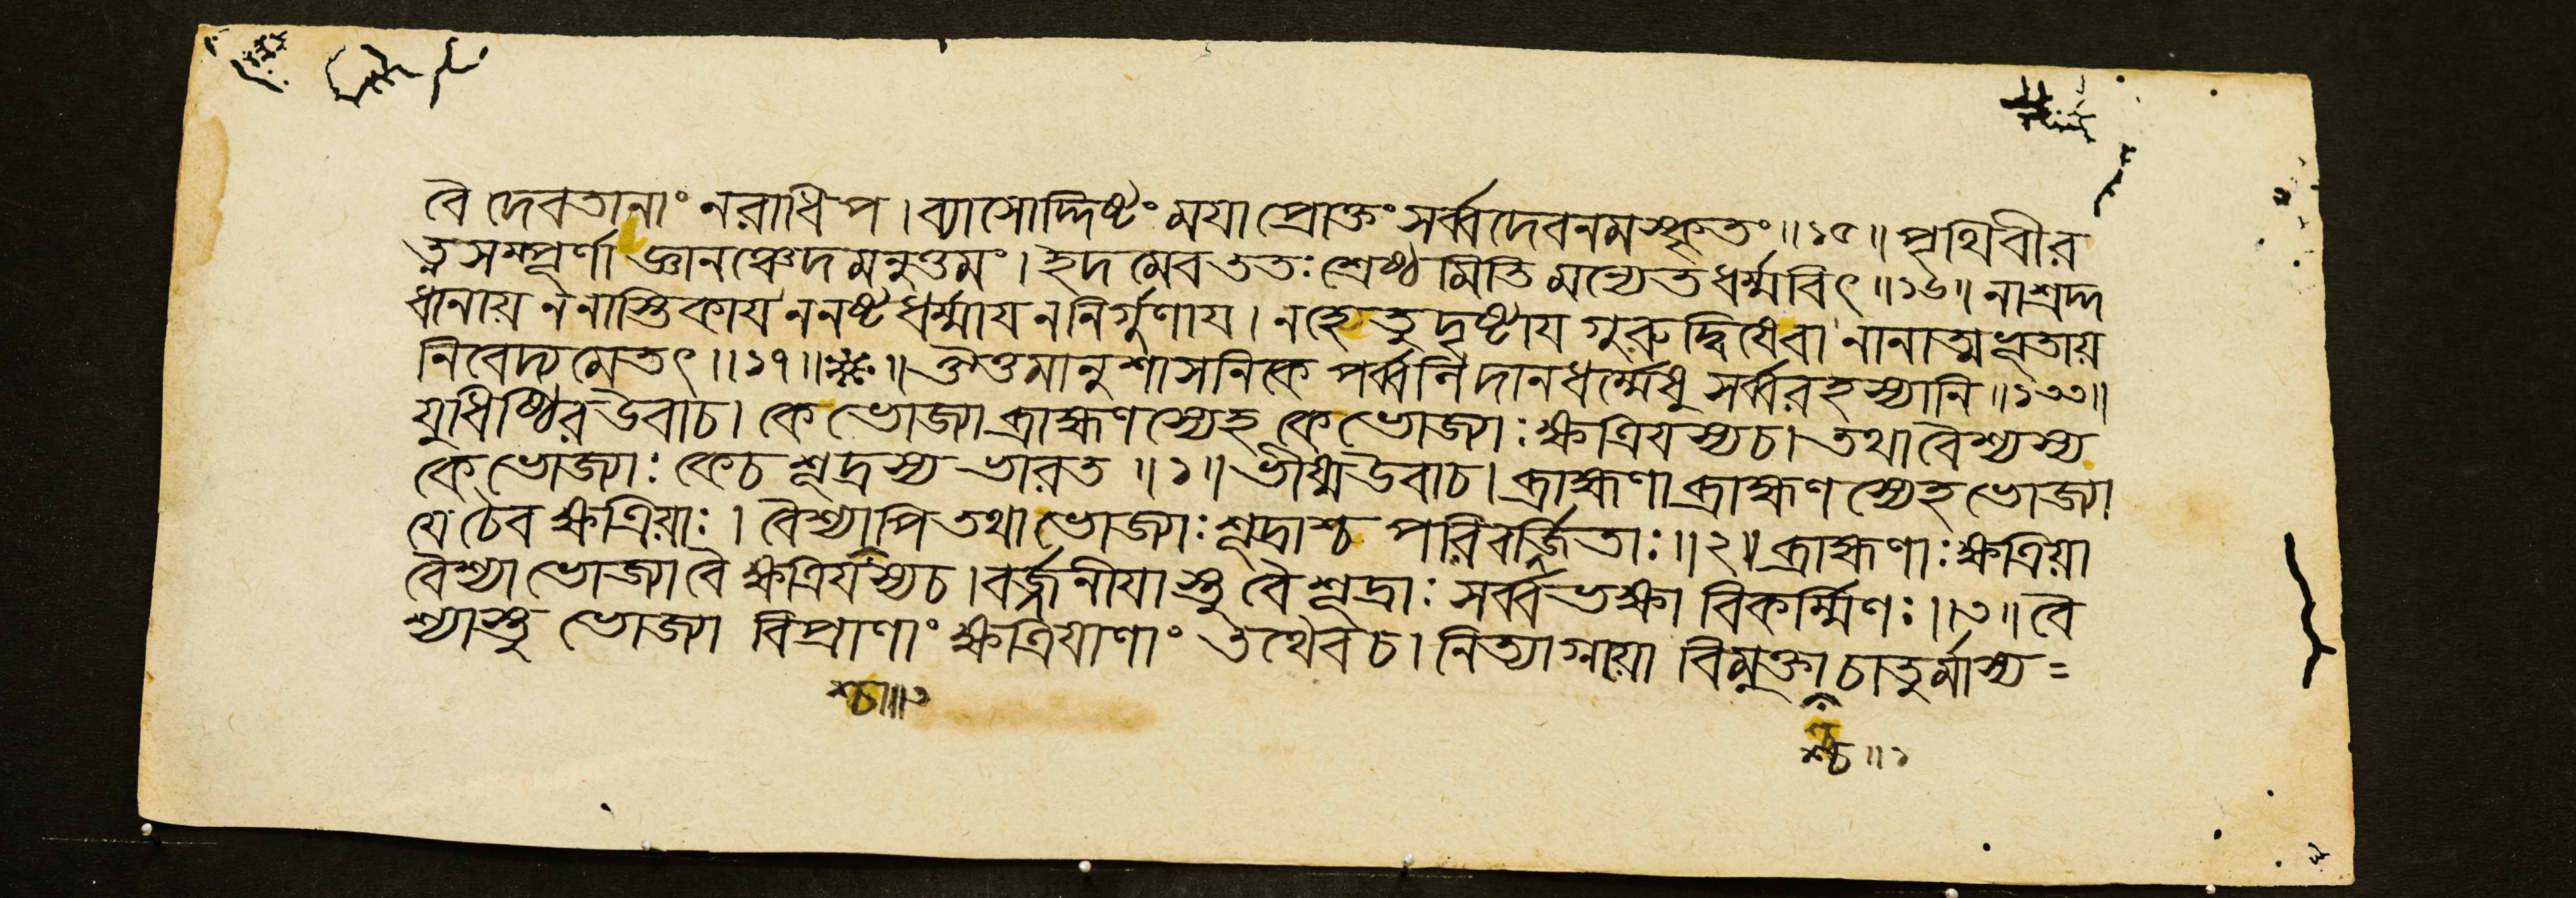 বৈ দেবতানাং নরাধিপ । ব্যাসোদ্দিষ্টং ময়া প্রোক্তং সর্ব্বদেবনমস্কৃতং ॥ ১৫ ॥ পৃথিবীর
ত্নসম্পূর্ণা জ্ঞানঞ্চেদমনুত্তমং । ইদমেব ততঃ শ্রেষ্ঠমিতি মন্যেত ধর্ম্মবিৎ ॥ ১৬ ॥ নাশ্রদ্দ
ধানায় ননাস্তিকায় ননষ্টধর্ম্মায় ননির্গুণায় । নহেতুদুষ্টায় গুরুদ্বিষেবা নানাত্মভূতায়
নিবেদ্যমেতৎ ॥ ১৭ ॥ ॥ মানুশাসনিকে পর্ব্বনি দানধর্ম্মেষু সর্ব্বরহস্যানি ॥ ১৩৩ ॥
যুধিষ্ঠির উবাচ । কে ভোজ্যা ব্রাহ্মণস্যেহ কে ভোজ্যাঃ ক্ষত্রিয়স্য চ । তথা বৈশ্যস্য
কে ভোজ্যাঃ কেচ শূদ্রস্য ভারত ॥ ১ ॥ ভীষ্মউবাচ । ব্রাহ্মণা ব্রাহ্মণস্যেহ ভোজ্যা
যে চৈব ক্ষত্রিয়াঃ । বৈশ্যাপি তথা ভোজ্যাঃ শূদ্রাশ্চ পরিবর্জ্জিতাঃ ॥ ২ ॥ ব্রাহ্মণাঃ ক্ষত্রিয়া
বৈশ্যা ভোজ্যা বৈ ক্ষত্রিয়স্য চ । বর্জ্জনীয়াস্তু বৈ শূদ্রাঃ সর্ব্বভক্ষা বিকর্ম্মিণঃ ॥ ৩ ॥ বৈ
শ্যাস্তু ভোজ্যা বিপ্রাণাং ক্ষত্রিয়াণাং তথৈব চ । নিত্যাগ্নায়া বিমুক্তা চাতুর্মাস্য =
শ্চা ॥ ৩
শ্চ ॥ ১